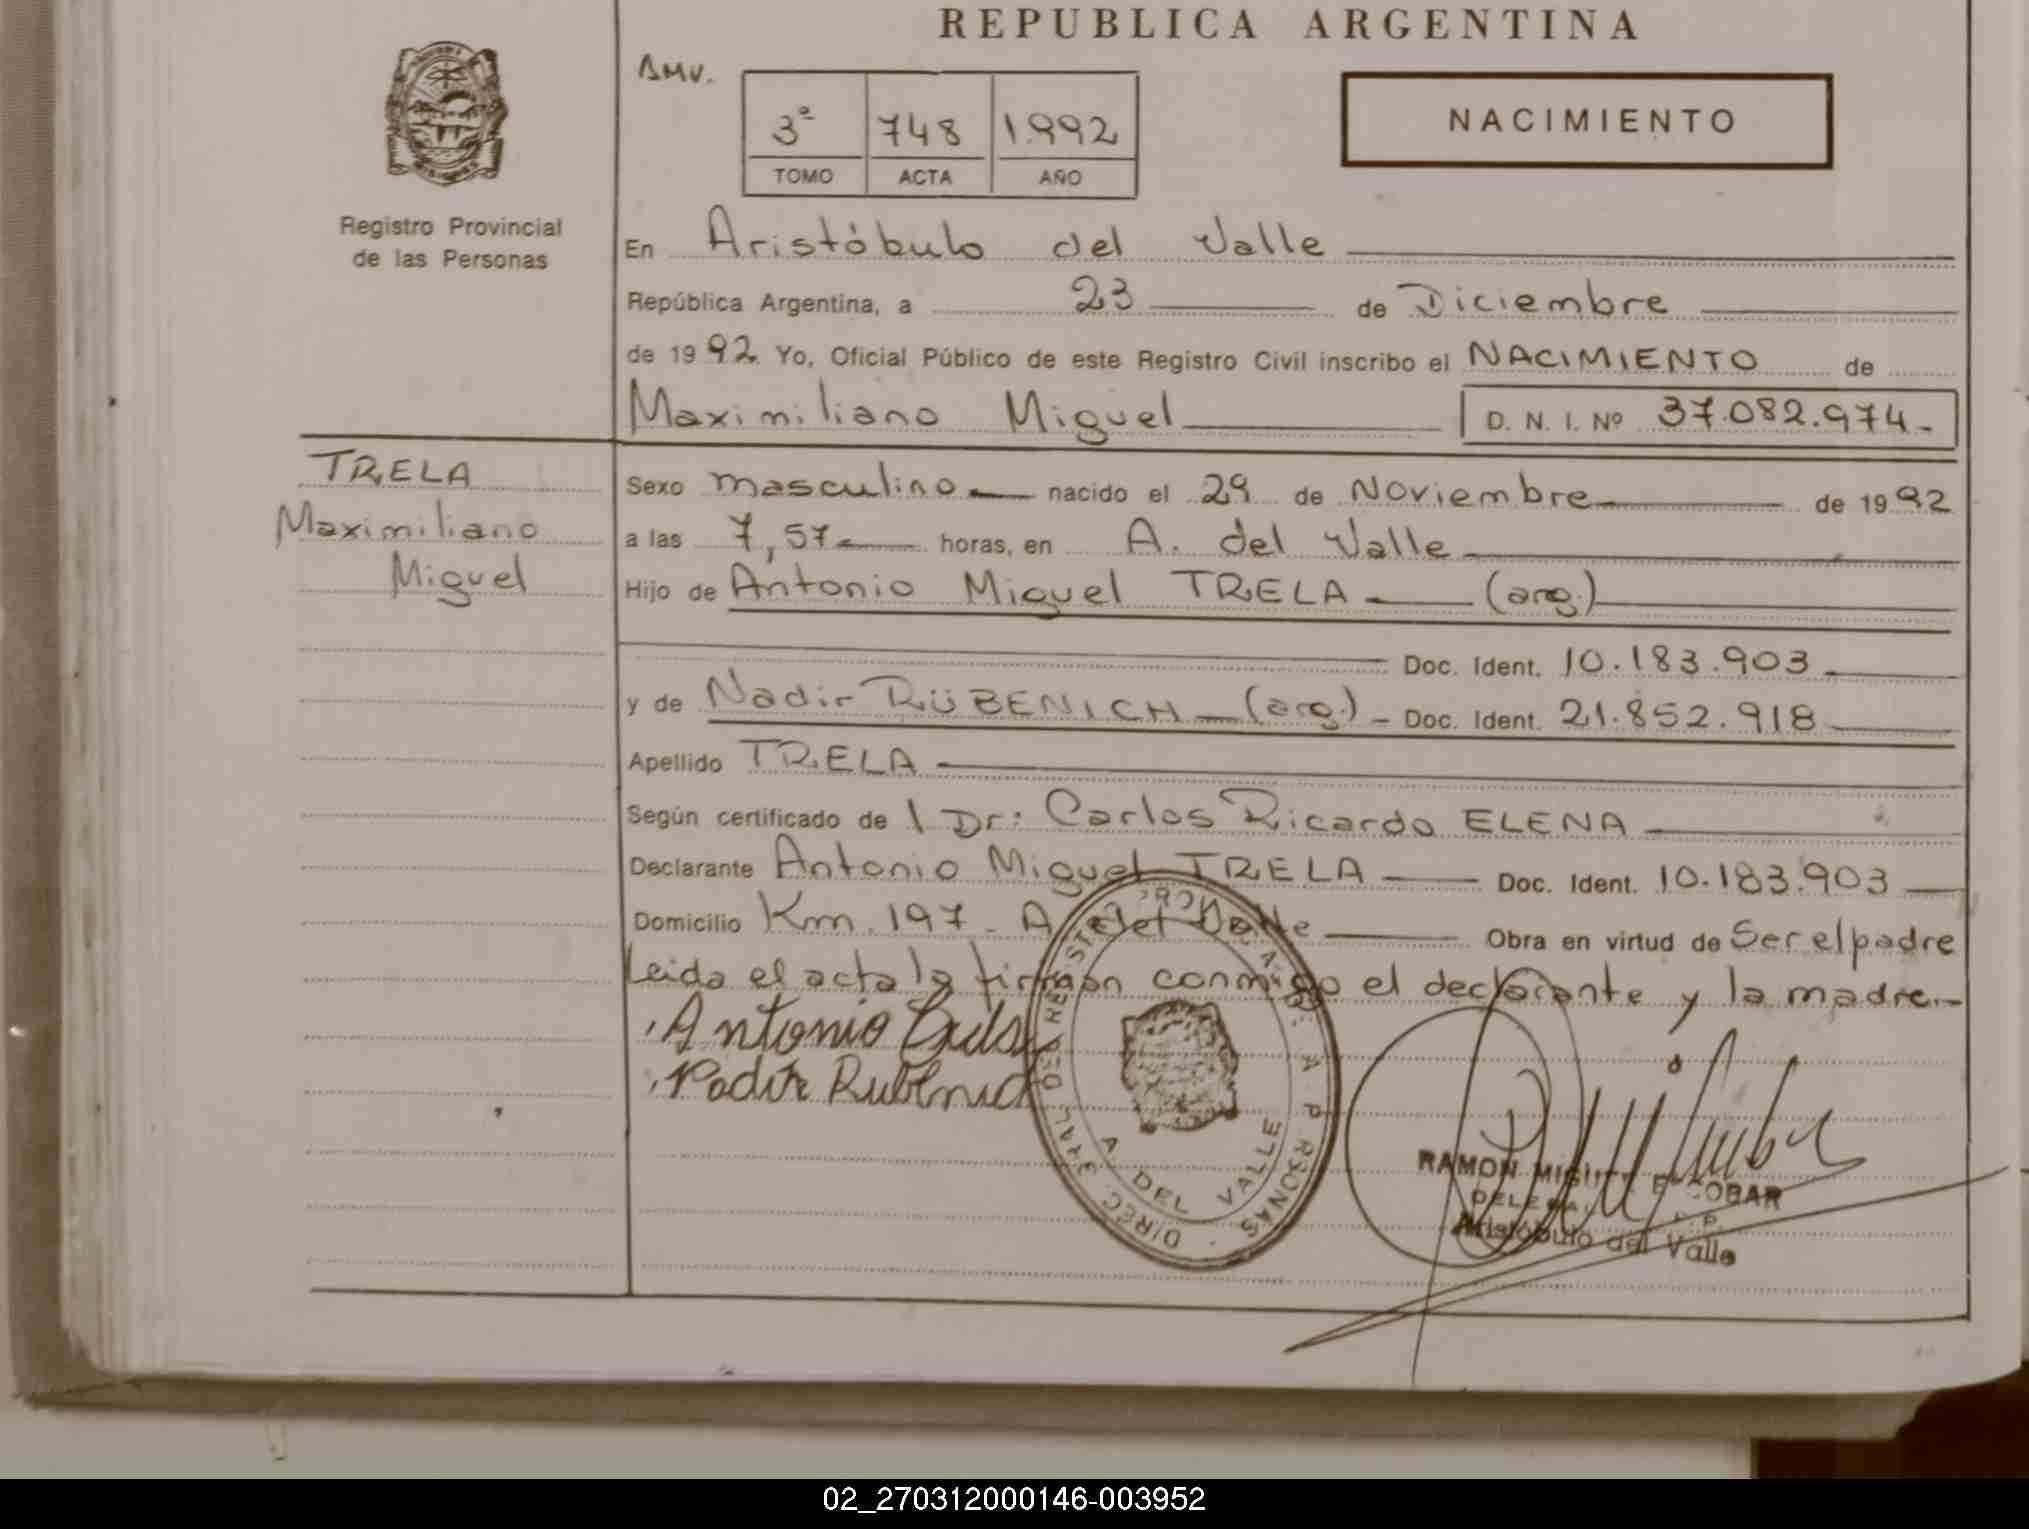 REPUBLICA ARGENTINA
AMV.
NACIMIENTO
3ª 748 1.992
TOMO ACTA AÑO
Registro Provincial
de las Personas
En Aristóbulo del Valle
República Argentina, a 23 de Diciembre
de 1992 Yo, Oficial Público de este Registro Civil inscribo el NACIMIENTO de
Maximiliano Miguel D. N. I. Nº 37.082.974.-
TRELA
Maximiliano
Miguel
Sexo masculino nacido el 29 de Noviembre de 1992
a las 7,57 horas, en A. del Valle
Hijo de Antonio Miguel TRELA (arg.)
Doc. Ident. 10.183.903
y de Nadir RÜBENICH (arg.) - Doc. Ident. 21.852.918
Apellido TRELA
Según certificado de l Dr: Carlos Ricardo ELENA
Declarante Antonio Miguel TRELA Doc. Ident. 10.183.903
Domicilio Km. 197 - A. del Valle Obra en virtud de Ser el padre
Leida el acta la firman conmigo el declarante y la madre.-
Antonio
Nadir Rubenich
A DEL VALLE
RAMON MIGUEL ESCOBAR
Aristóbulo del Valle
02_270312000146-003952